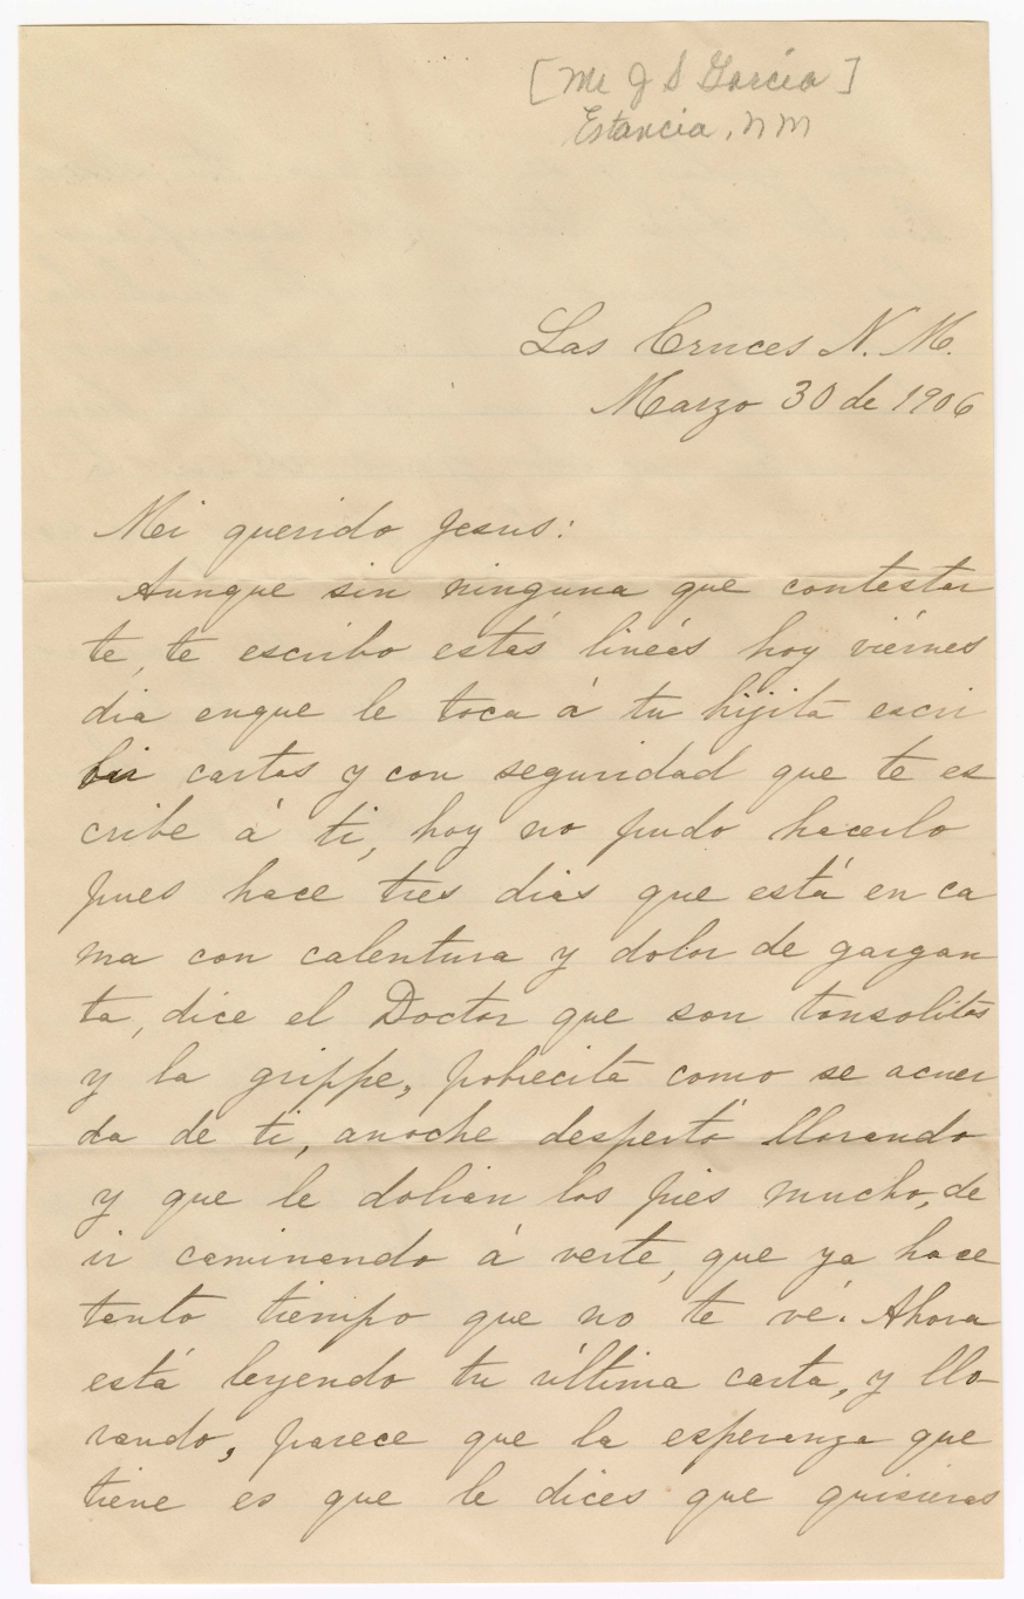 [Mr J S Garcia]
Estancia, N M
Las Cruces N. M.
Marzo 30 de 1906
Mi querido Jesus:
Aunque sin ninguna que contestar
te, te escribo estás lineás hoy viérnes
dia enque le toca á tu hijita escri
bir cartas y con seguridad que te es
cribe á ti, hoy no pudo hacerlo
pues hace tres dias que está en ca
ma con calentura y dolor de gargan
ta, dice el Doctor que son tonsolitas
y la grippe, pobrecita como se acuer
da de ti, anoche despertó llorando
y que le dolian los pies mucho, de
ir caminando á verte, que ya hace
tanto tiempo que no te vé. Ahora
está leyendo tu última carta, y llo-
rando, parece que la esperanza que
tiene es que le dices que quisieras